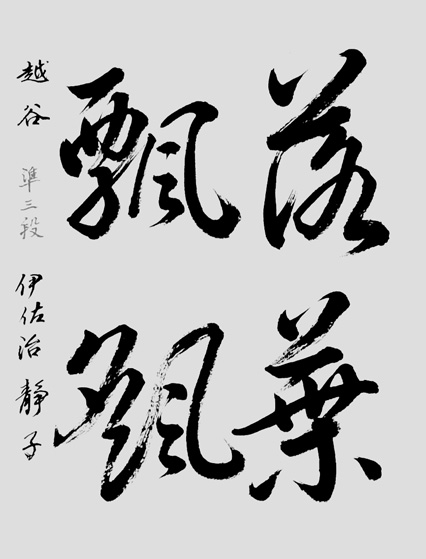 落葉
飄颻
越谷 準三段 伊佐治静子